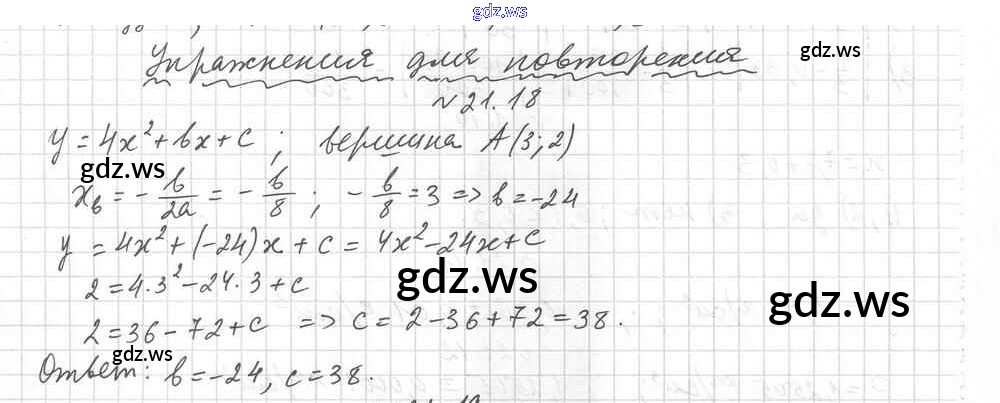 gdz.ws
Упражнения для повторения
gdz.ws
№21.18
y = 4x² + bx + c ; вершина A(3; 2)
gdz.ws
xв = - b/2a = - b/8 ; - b/8 = 3 => b = -24
y = 4x² + (-24)x + c = 4x² - 24x + c
2 = 4·3² - 24·3 + c
gdz.ws
gdz.ws
2 = 36 - 72 + c => c = 2 - 36 + 72 = 38.
gdz.ws
Ответ: b = -24, c = 38.